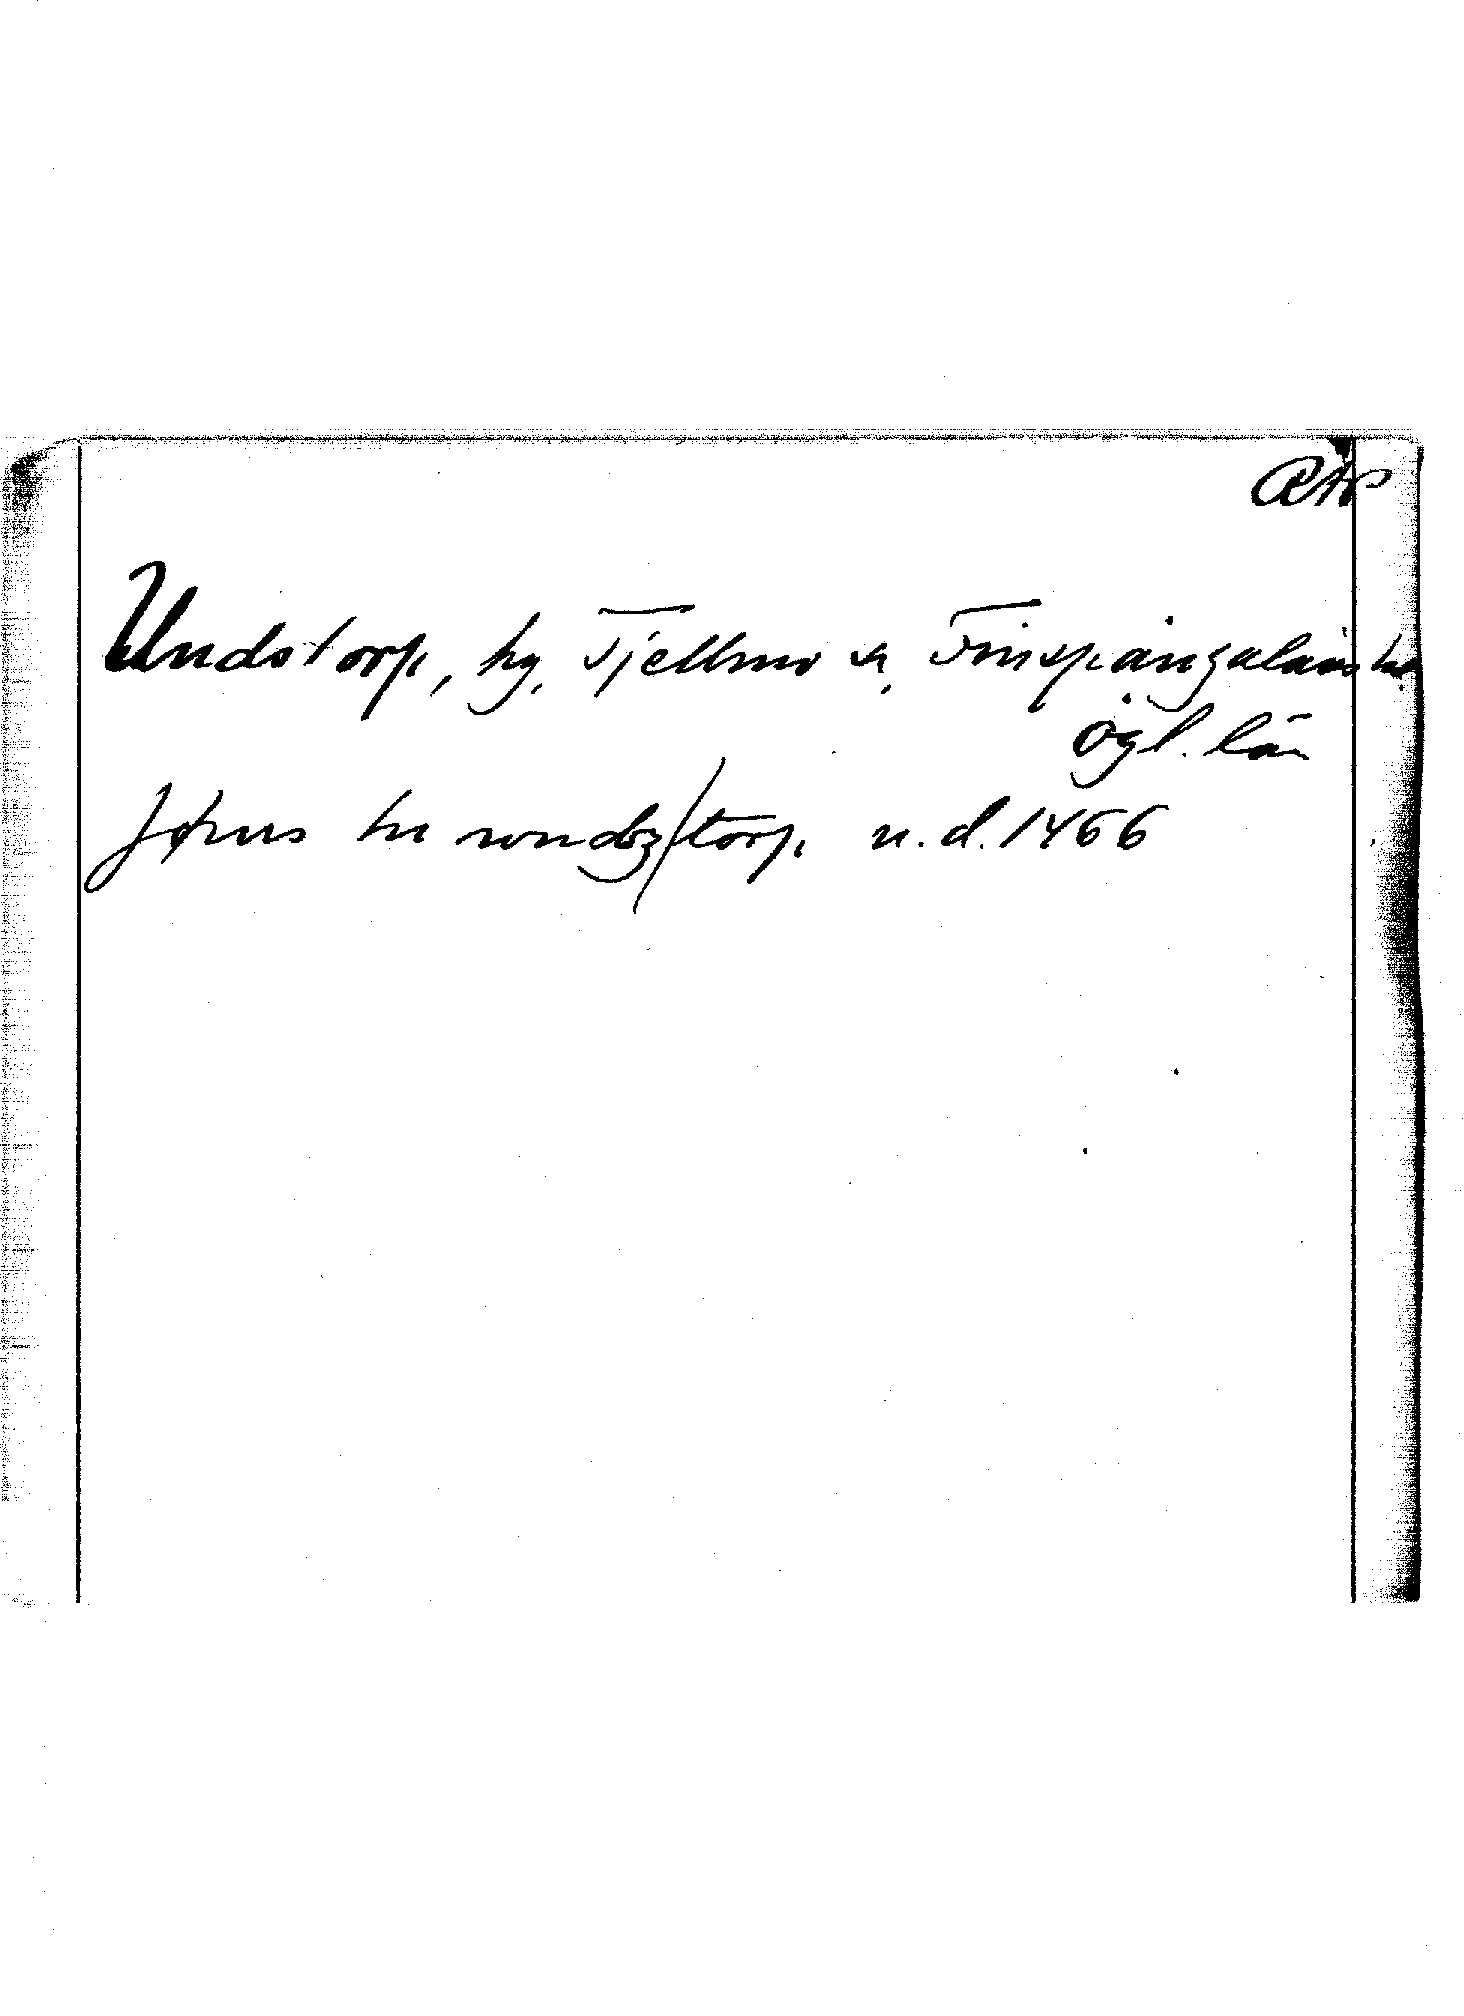 RAP
Undstorp, hg, Tjellmo sn, Finspångalänshd
Ögl. län
Johns hu wndz/torp u.d. 1466